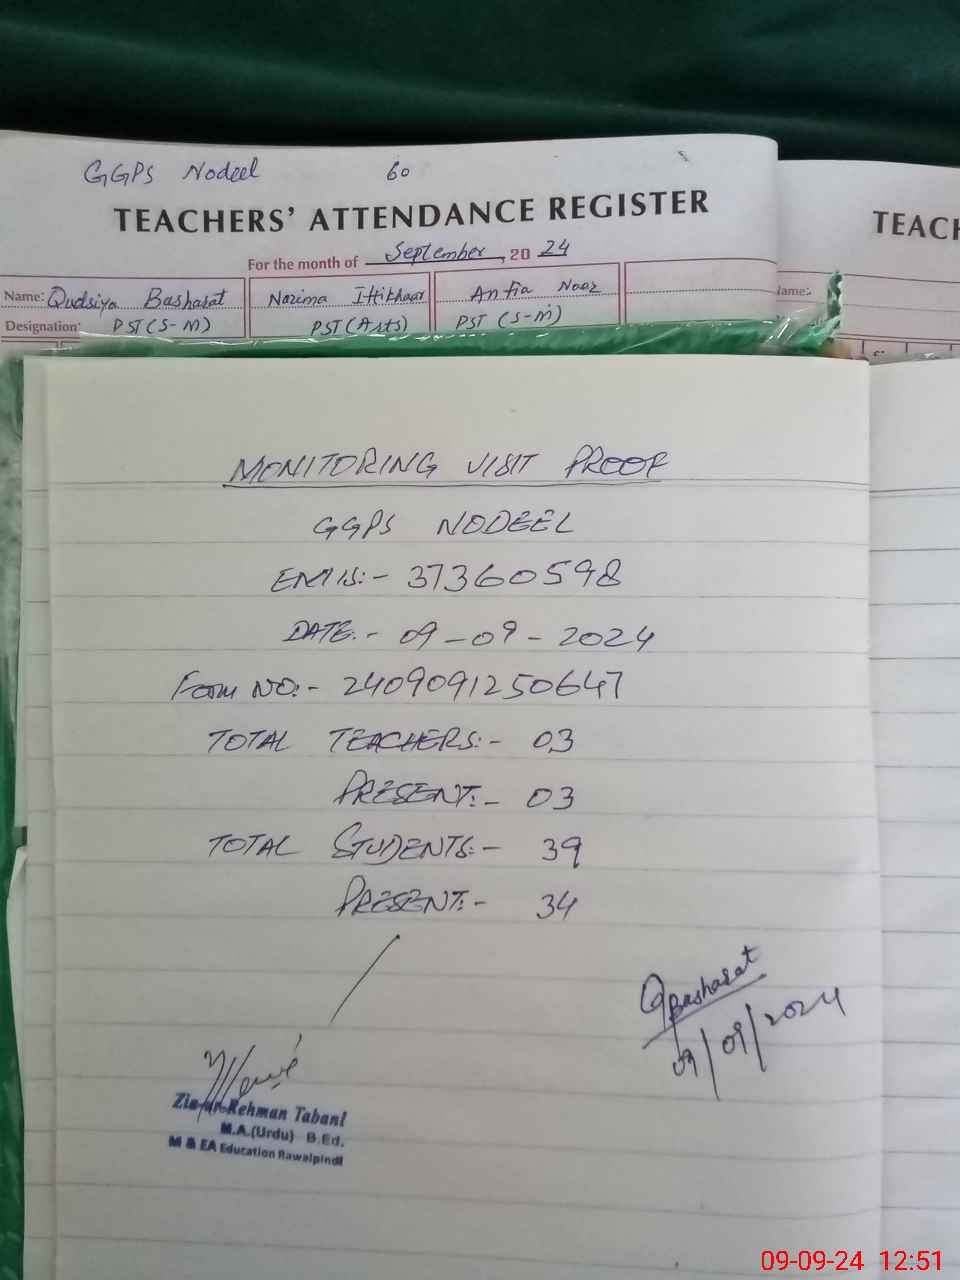 GGPS Nodeel 60
TEACHERS' ATTENDANCE REGISTER
For the month of September, 2024
Name: Qudsiya Basharat Nazima Iftikhaar Anfia Nooz
Designation: PST (S-M) PST (Arts) PST (S-M)
TEACH
Name:
MONITORING VISIT PROOF
GGPS NODEEL
EMIS:- 37360598
DATE:- 09-09-2024
Form NO:- 2409091250647
TOTAL TEACHERS:- 03
PRESENT:- 03
TOTAL STUDENTS:- 39
PRESENT:- 34
QBasharat
09/09/2024
Zia-ur-Rehman Tabani
M.A.(Urdu) B.Ed.
M & EA Education Rawalpindi
09-09-24 12:51